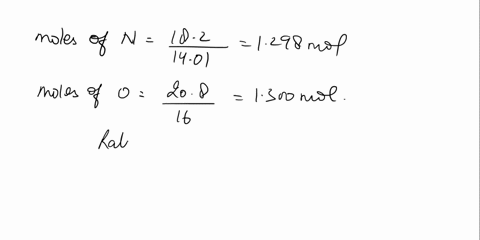 moles of N = 18.2 / 14.01 = 1.298 mol
moles of O = 20.8 / 16 = 1.300 mol.
Rat